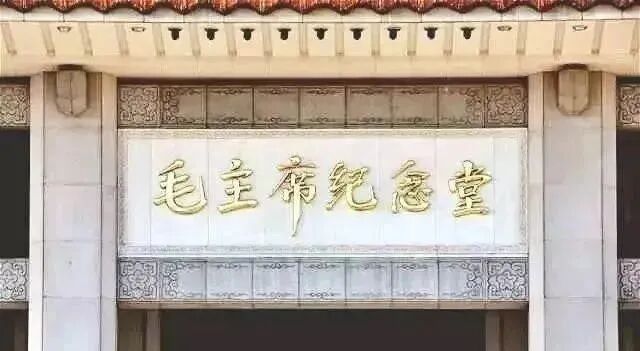 毛主席纪念堂